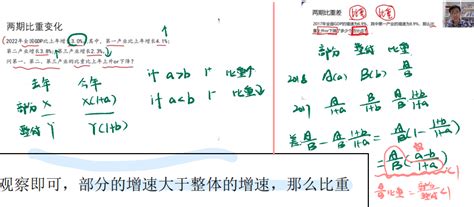 两期比重变化
2022年全国GDP比上年增长3.0%，其中，第一产业比上年增长4.1%；
第二产业增长3.8%；第三产业增长2.3%。
问第一、第二、第三产业的比重比上年上升or下降？
去年 今年
部分 X X(1+a)
整体 Y Y(1+b)
if a>b 比重↑
if a<b 比重↓
两期比重差
比重 比重
部分 整体 比重
2018 A(a) B(b) A/B
2017 A/1+a B/1+b A/B·1+b/1+a
差 A/B - A/B·1+b/1+a = A/B(1-1+b/1+a)
= A/B(a-b/1+a)
A/B 比重 = 部分/整体 <1
观察即可，部分的增速大于整体的增速，那么比重